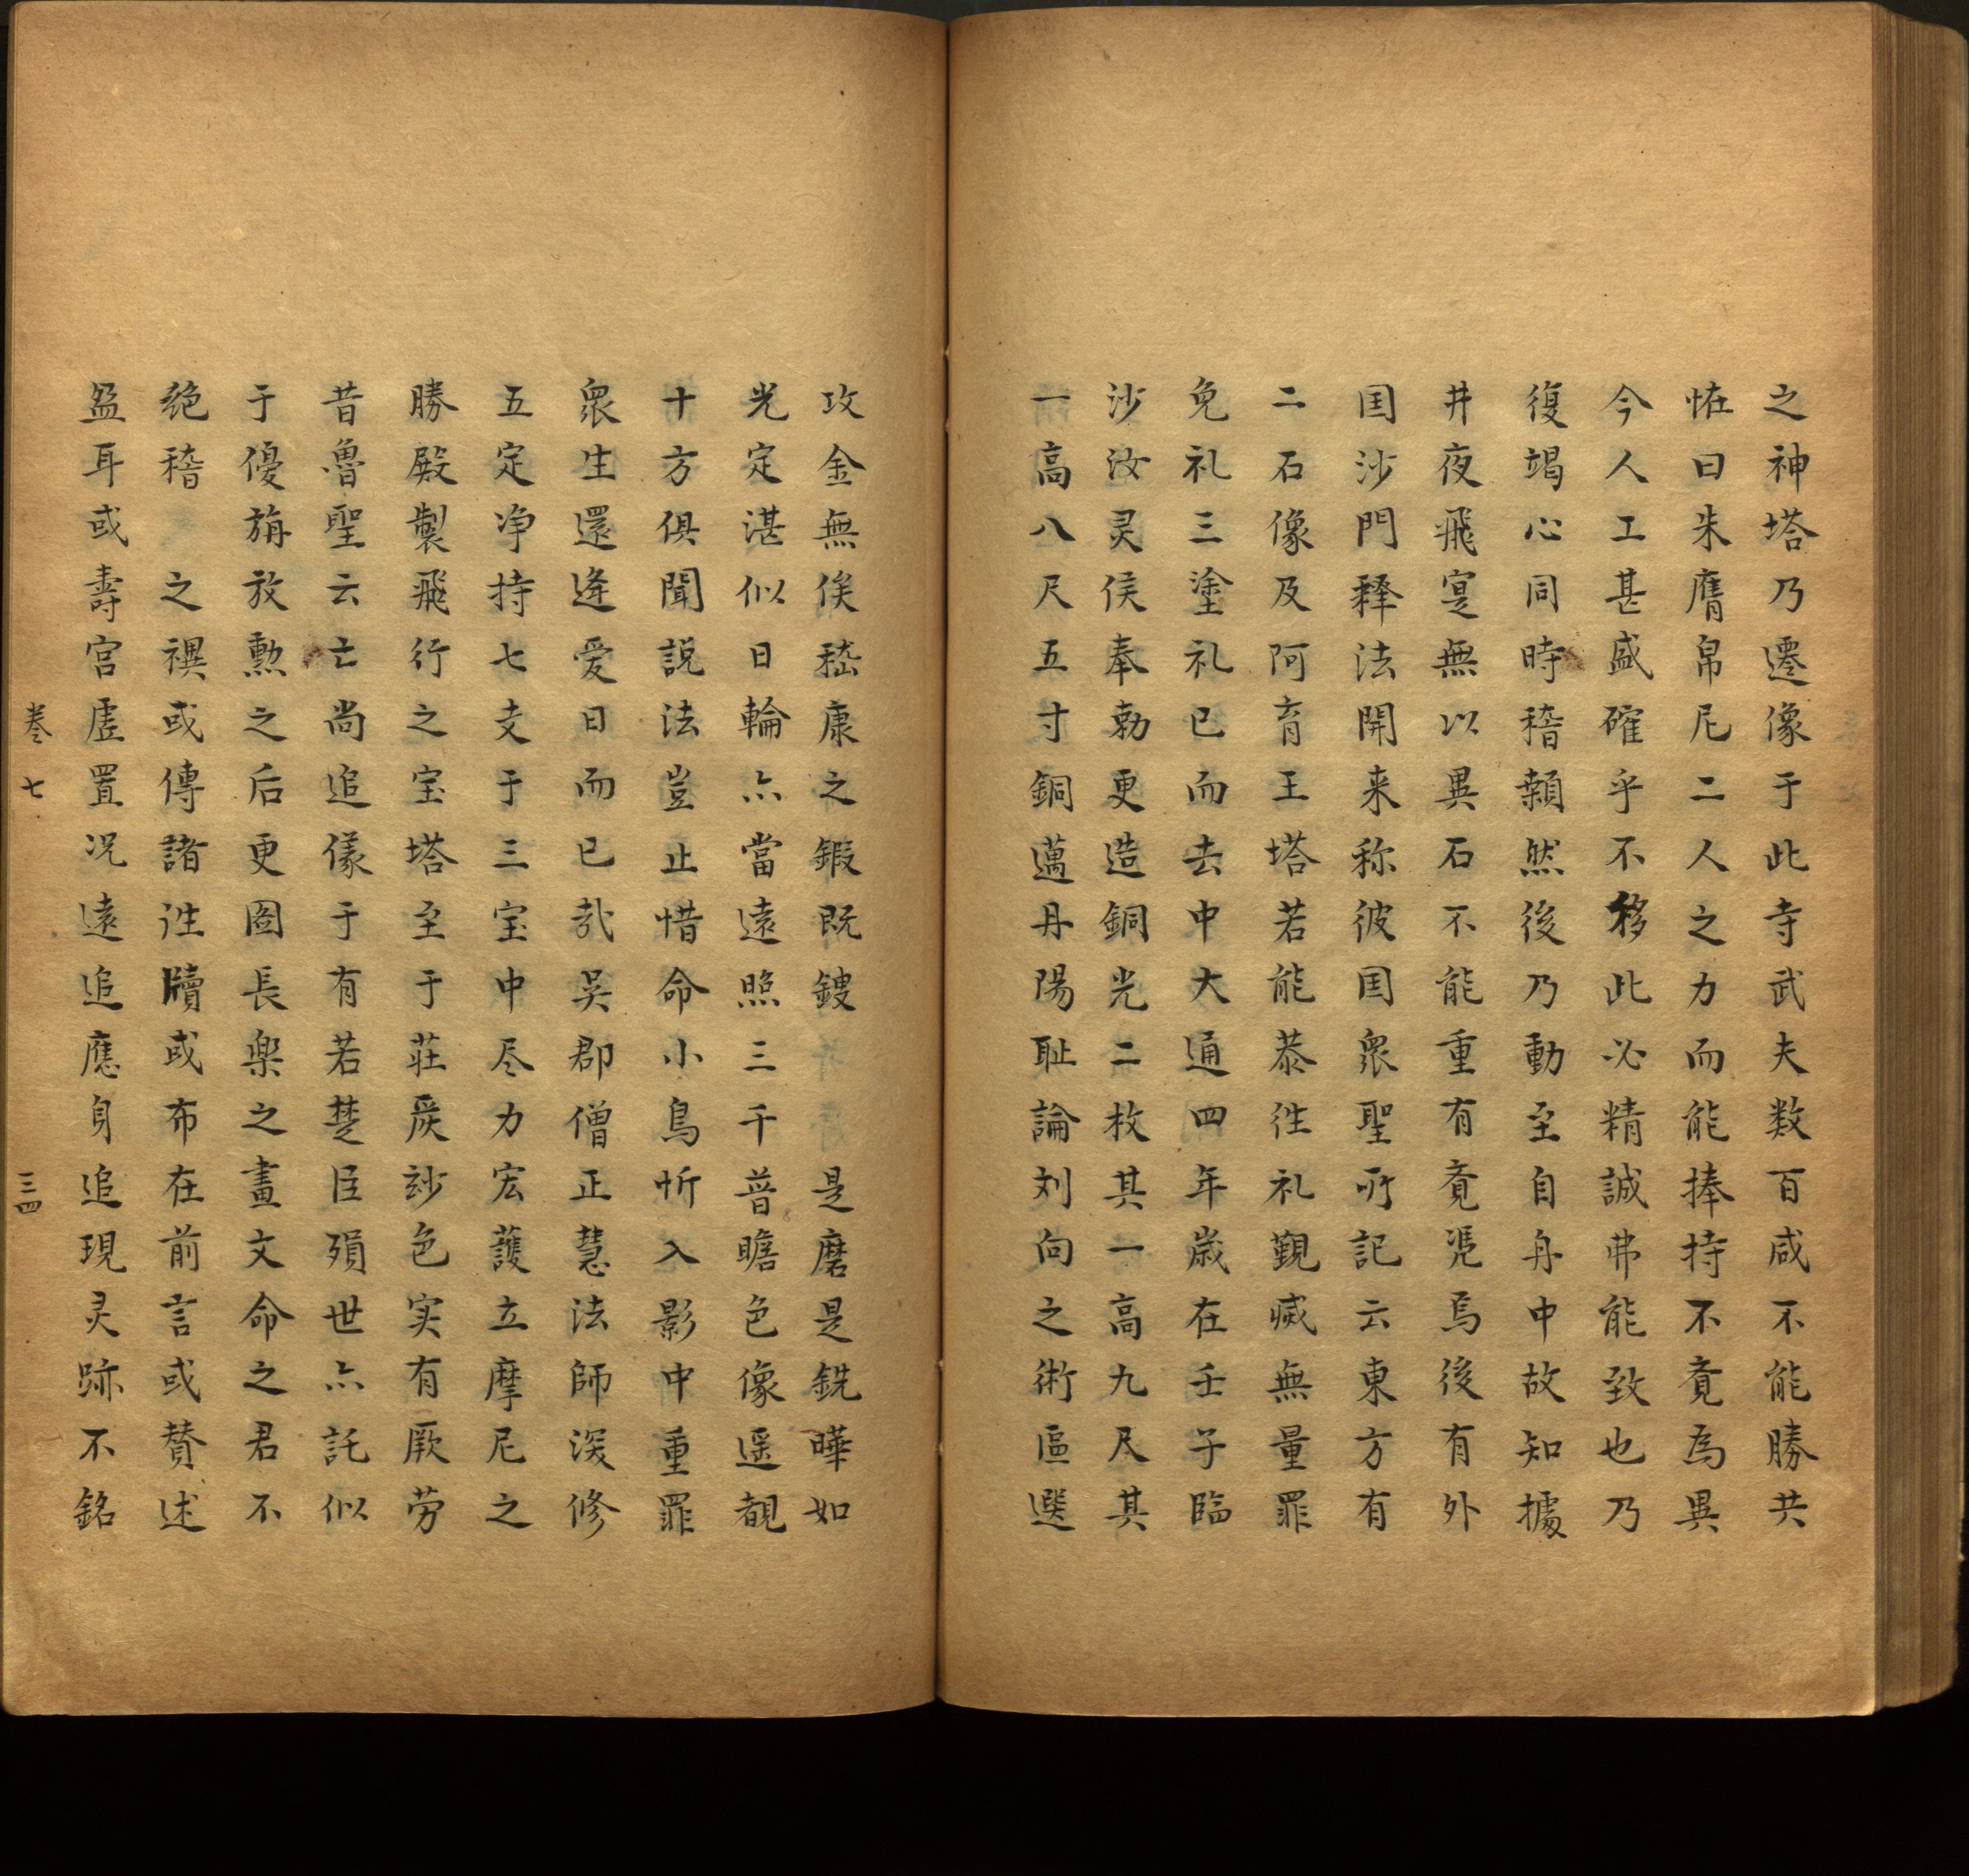 之神塔乃遷像于此寺武夫数百咸不能勝共
恠曰朱膺帛尼二人之力而能捧持不竟為異
今人工甚盛確乎不移此必精誠弗能致也乃
復竭心同時稽顙然後乃動至自舟中故知據
井夜飛寔無以異石不能重有竟凴焉後有外
囯沙門释法開来称彼囯衆聖所記云東方有
二石像及阿育王塔若能恭徃礼觐滅無量罪
免礼三塗礼已而去中大通四年歳在壬子臨
沙汝灵侯奉勅更造銅光二枚其一高九尺其
一高八尺五寸銅邁丹陽耻論刘向之術區選
攻金無俟嵇康之鍜既鋑 是磨是銑曄如
光定湛似日輪亦當遠照三千普瞻色像遥覩
十方俱聞説法豈止惜命小鳥忻入影中重罪
衆生還逢爱日而已哉吳郡僧正慧法師深修
五定净持七支于三宝中尽力宏護立摩尼之
勝殿製飛行之宝塔至于莊嚴玅色实有厥劳
昔魯聖云亡尚追㣟于有若楚臣殞世亦託似
于優旃放勲之后更圖長楽之畫文命之君不
绝稽 之禩或傳諸徃牘或布在前言或賛述
盈耳或壽宫虚置况遠追應身追現灵跡不銘
卷七
三四